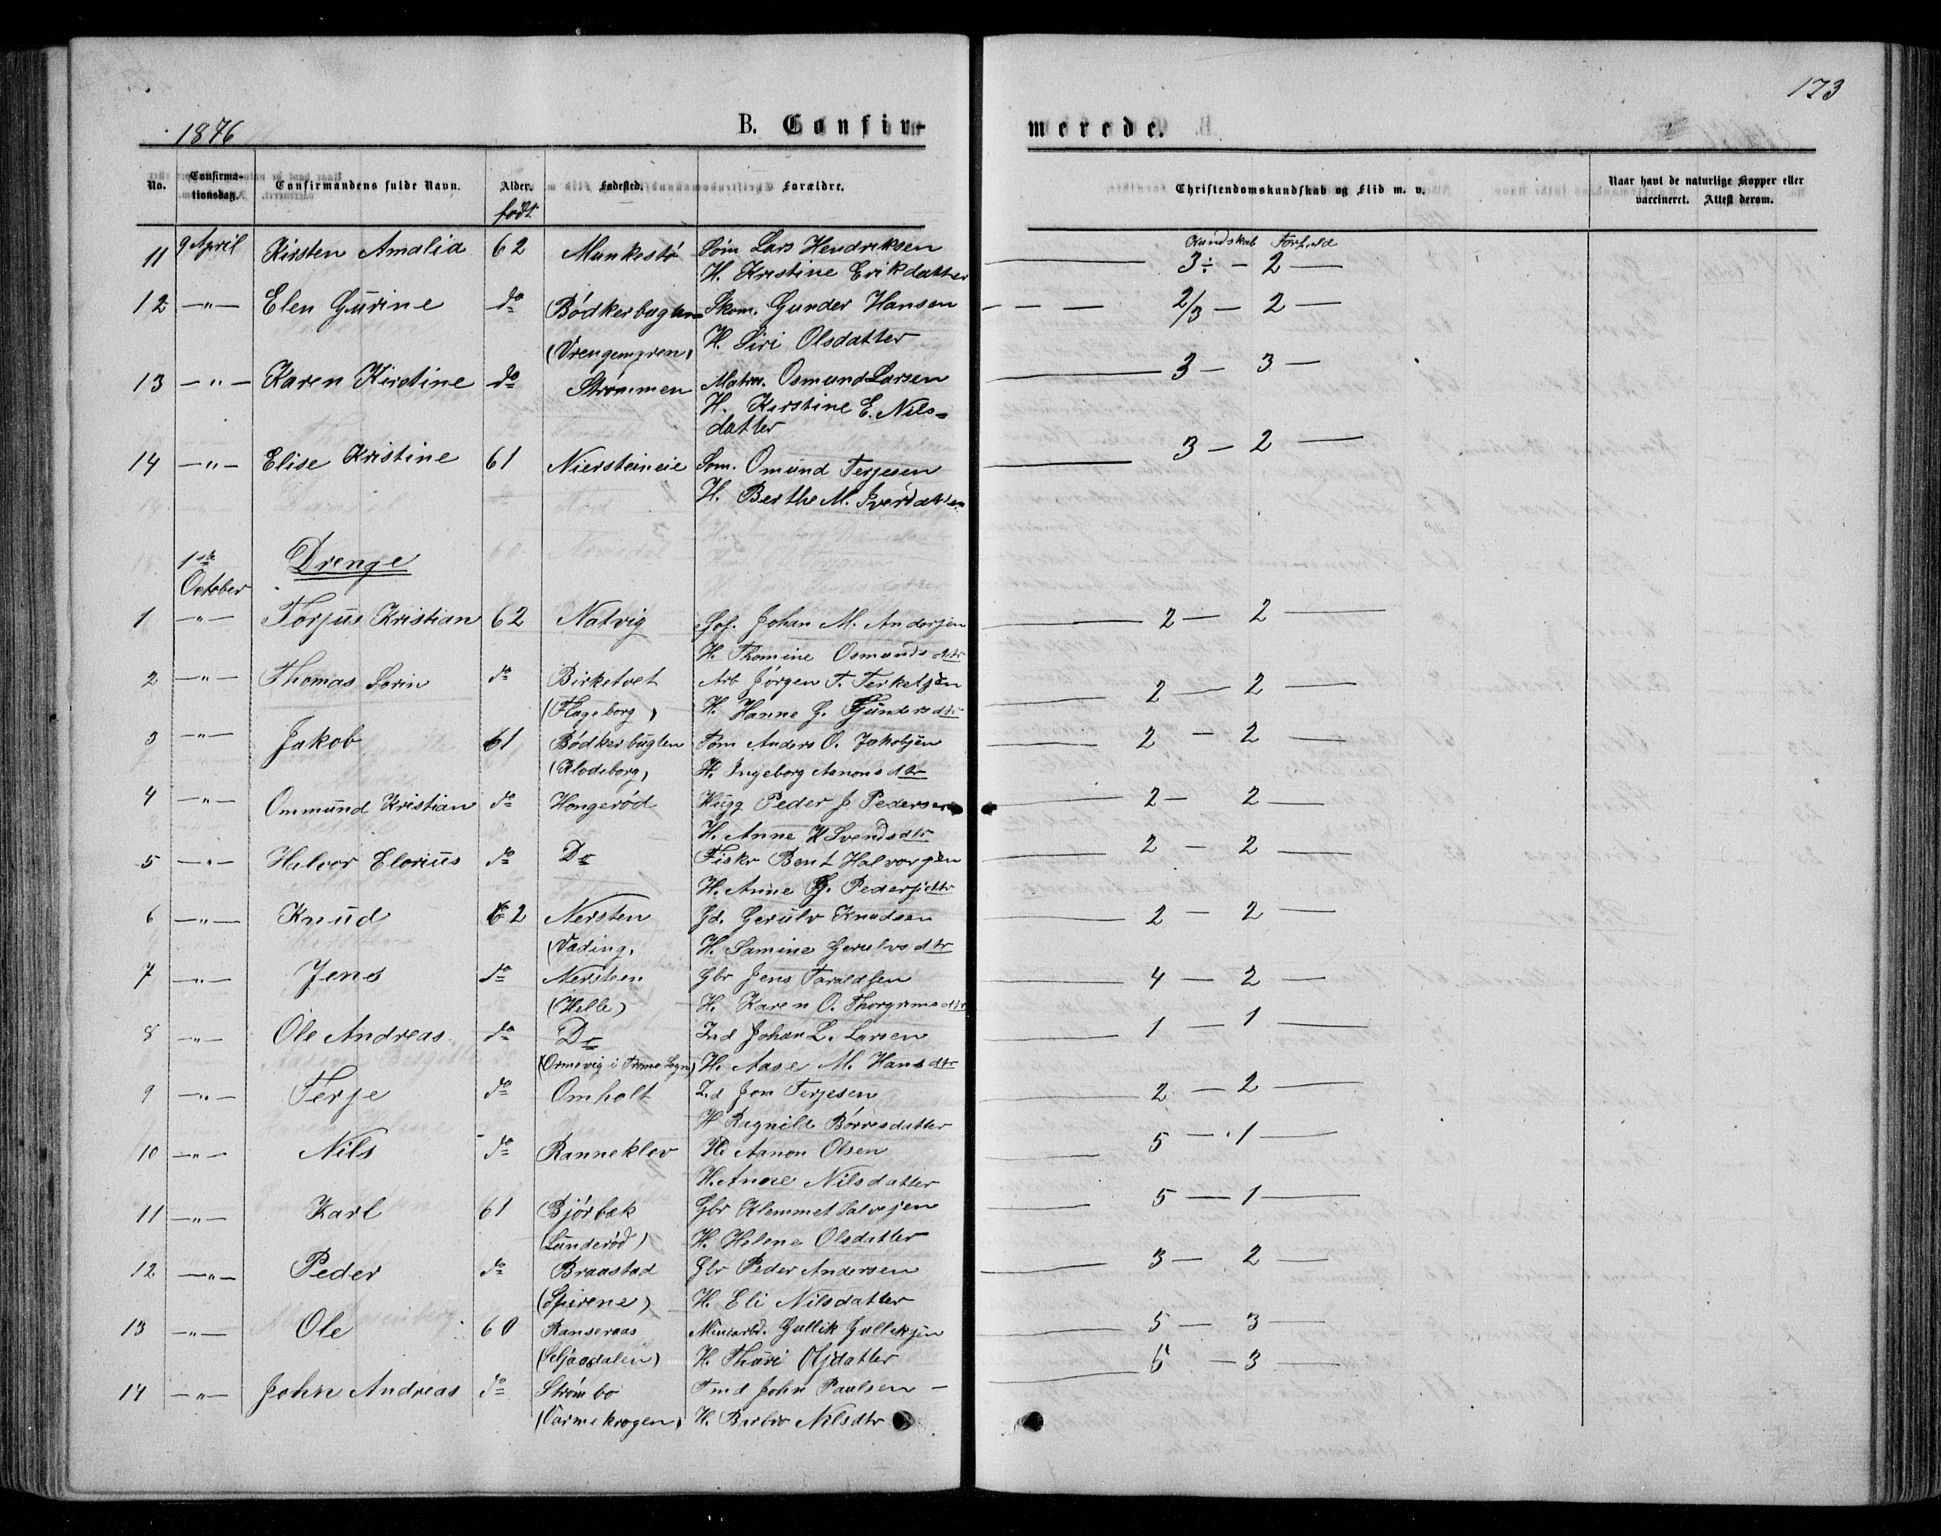 173
1876 B. Confir- merede.
No. Confirma-tionsdag. Confirmandens fulde Navn. Alder. født Fødested. Forældre. Christendomskundskab og Flid m. v. Naar havt de naturlige Kopper eller vaccineret. Attest derom.
Kundskab Forhold
11 9 April Kirsten Amalia 62 Munkestø Søm Lars Hendriksen 3÷ — 2 —
H. Kristine Erikdatter
12 —"— Elen Gurine do Bødkerbugten Skom. Gunder Hansen 2/3 — 2 —
(Vrengempren) H. Siri Olsdatter
13 —"— Karen Kirstine do Strømmen Matrs. Osmund Larsen 3 — 3 —
H. Kirstine E. Nils-
datter
14 —"— Elise Kristine 61 Niersteineie Søm. Omund Terjesen 3 — 2 —
H. Berthe M. Iversdatter
1ste October Drenge
1 —"— Torjus Kristian 62 Natvig Gof. Johan M. Andersen 2 — 2 —
H. Thomine Osmundsdtr
2 —"— Thomas Sørin do Birketvet Arb Jørgen T. Terkelsen 2 — 2 —
(Flageborg) H. Hanne G. Gundersdtr
3 —"— Jakob 61 Bødkerbugten Tøm Anders O. Jakobsen 2 — 2 —
(Klodeborg) H. Ingeborg Aanonsdtr
4 —"— Ommund Kristian do Hongerød Hugg Peder J Pedersen 2 — 2 —
H. Anne K Svendsdtr
5 —"— Halvor Elorius do Do Fisker Bent Halvorsen 2 — 2 —
H. Anne G. Pedersdtr
6 —"— Knud 62 Nersten Gd. Gerulv Knudsen 2 — 2 —
(Vading) H. Samine Gerulvsdtr
7 —"— Jens do Nersten Gbr Jens Taraldsen 4 — 2 —
(Helle) H. Karen O. Thorgrimsdtr
8 —"— Ole Andreas do Do Ind Johan L. Larsen 1 — 1 —
(Ormevig i Tromø Sogn) H. Aase M. Hansdtr
9 —"— Terje do Omholt Ind Jon Terjesen 2 — 2 —
H Ragnild Børresdatter
10 —"— Nils do Ranneklev H. Aanon Olsen 5 — 1 —
H. Anne Nilsdatter
11 —"— Karl 61 Bjørbæk Gbr Klemmet Salvesen 5 — 1 —
(Lunderød) H. Helene Olsdatter
12 —"— Peder do Braastad Gbr Peder Andersen 3 — 2 —
(Spirene) H. Eli Nilsdatter
13 —"— Ole 60 Ranseraas Minearbd. Gullik Gulliksen 5 — 3 —
(Seljaasdalen) H. Thuri Olsdatter
14 —"— John Andreas do Strømbo Tmd John Paulsen — 5 — 3 —
(Varmekrogen) H. Barbro Nilsdtr